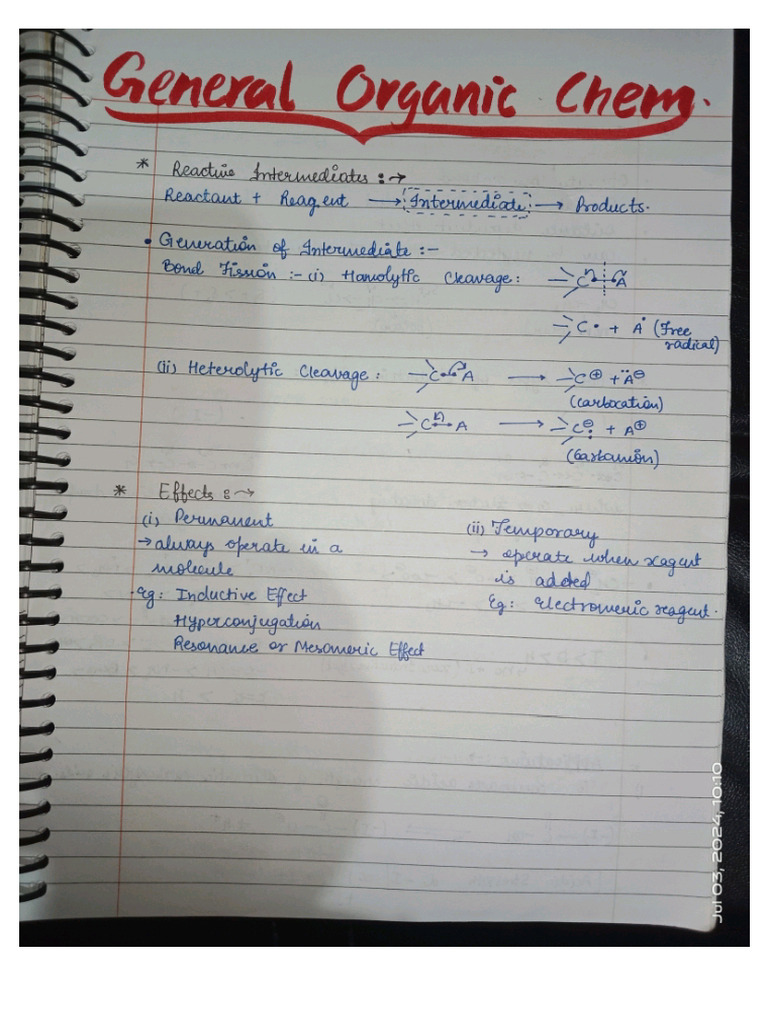 General Organic Chem.
* Reactive Intermediates :→
Reactant + Reagent → Intermediate → Products.
• Generation of Intermediate :-
Bond Fission :- (i) Homolytic Cleavage : C A
C• + A• (Free
radical)
(ii) Heterolytic Cleavage : C A → C⊕ + ÄӨ
(Carbocation)
C A → CӨ + A⊕
(Carbanion)
* Effects :→
(i) Permanent
→ always operate in a
molecule
Eg: Inductive Effect
Hyperconjugation
Resonance or Mesomeric Effect
(ii) Temporary
→ operate when reagent
is added
Eg: Electromeric reagent.
Jul 03, 2024, 10:10